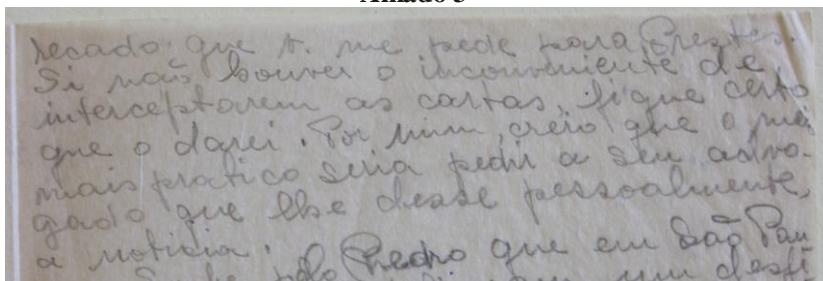 recado que V. me pede para Prestes.
Si não houver o inconveniente de
interceptarem as cartas, fique certo
que o darei. Por mim, creio que o mei
mais pratico seria pedir a seu advo-
gado que lhe desse pessoalmente,
a noticia.
pelo Pedro que em São Pau
um desfi